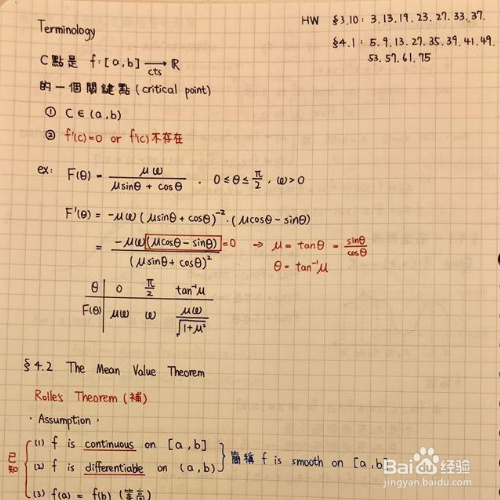 Terminology
HW §3.10: 3.13.19.23.27.33.37.
§4.1: 5.9.13.27.35.39.41.49.
53.57.61.75
C點是 f:[a,b] →cts ℝ
的一個關鍵點 (critical point)
① C∈(a,b)
② f'(c)=0 or f'(c)不存在
ex: F(θ) = μω / (μsinθ + cosθ) . 0≤θ≤π/2, ω>0
F'(θ) = -μω (μsinθ + cosθ)⁻²·(μcosθ - sinθ)
= -μω(μcosθ - sinθ) / (μsinθ + cosθ)² =0 → μ = tanθ = sinθ/cosθ
θ = tan⁻¹μ
θ 0 π/2 tan⁻¹μ
F(θ) μω ω μω/√(1+μ²)
§4.2 The Mean Value Theorem
Rolle's Theorem (補)
· Assumption ·
已知
(1) f is continuous on [a,b]
(2) f is differentiable on (a,b)
簡稱 f is smooth on [a,b]
(3) f(a) = f(b) (等高)
Baidu经验
jingyan.baidu.com